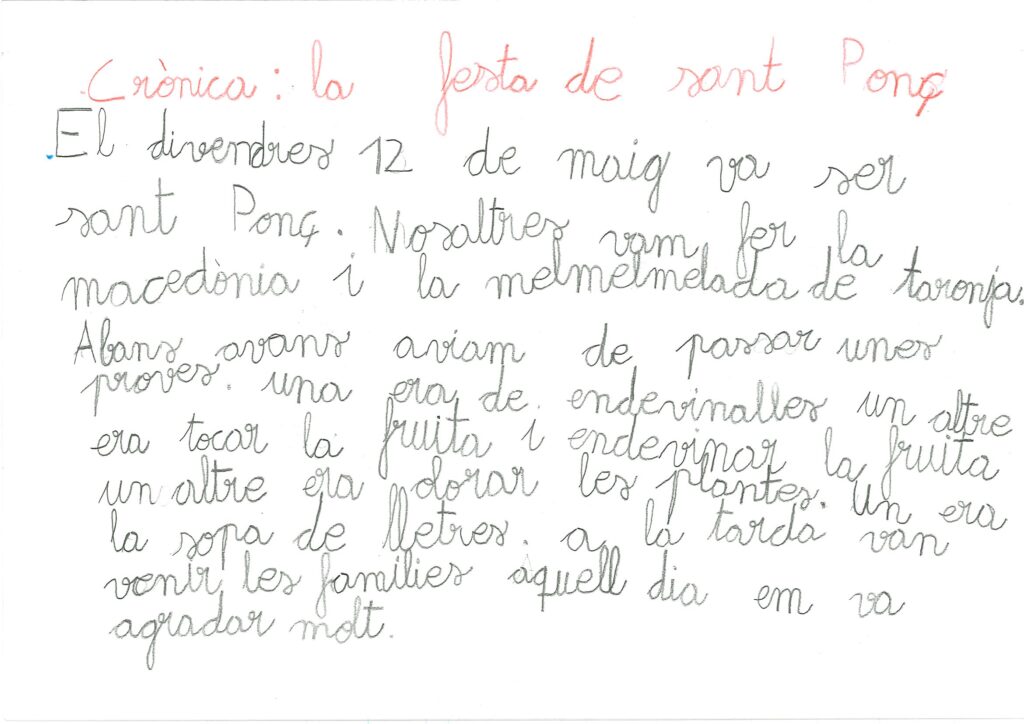 Crònica: la festa de sant Ponç
El divendres 12 de maig va ser
sant Ponç. Nosaltres vam fer la
macedònia i la melmelmelada de taronja.
Abans avans aviam de passar unes
proves. una era de. endevinalles un altre
era tocar la fruita i endevinar la fruita
un altre era olorar les plantes. Un era
la sopa de lletres. a la tarda van
venir les families aquell dia em va
agradar molt.